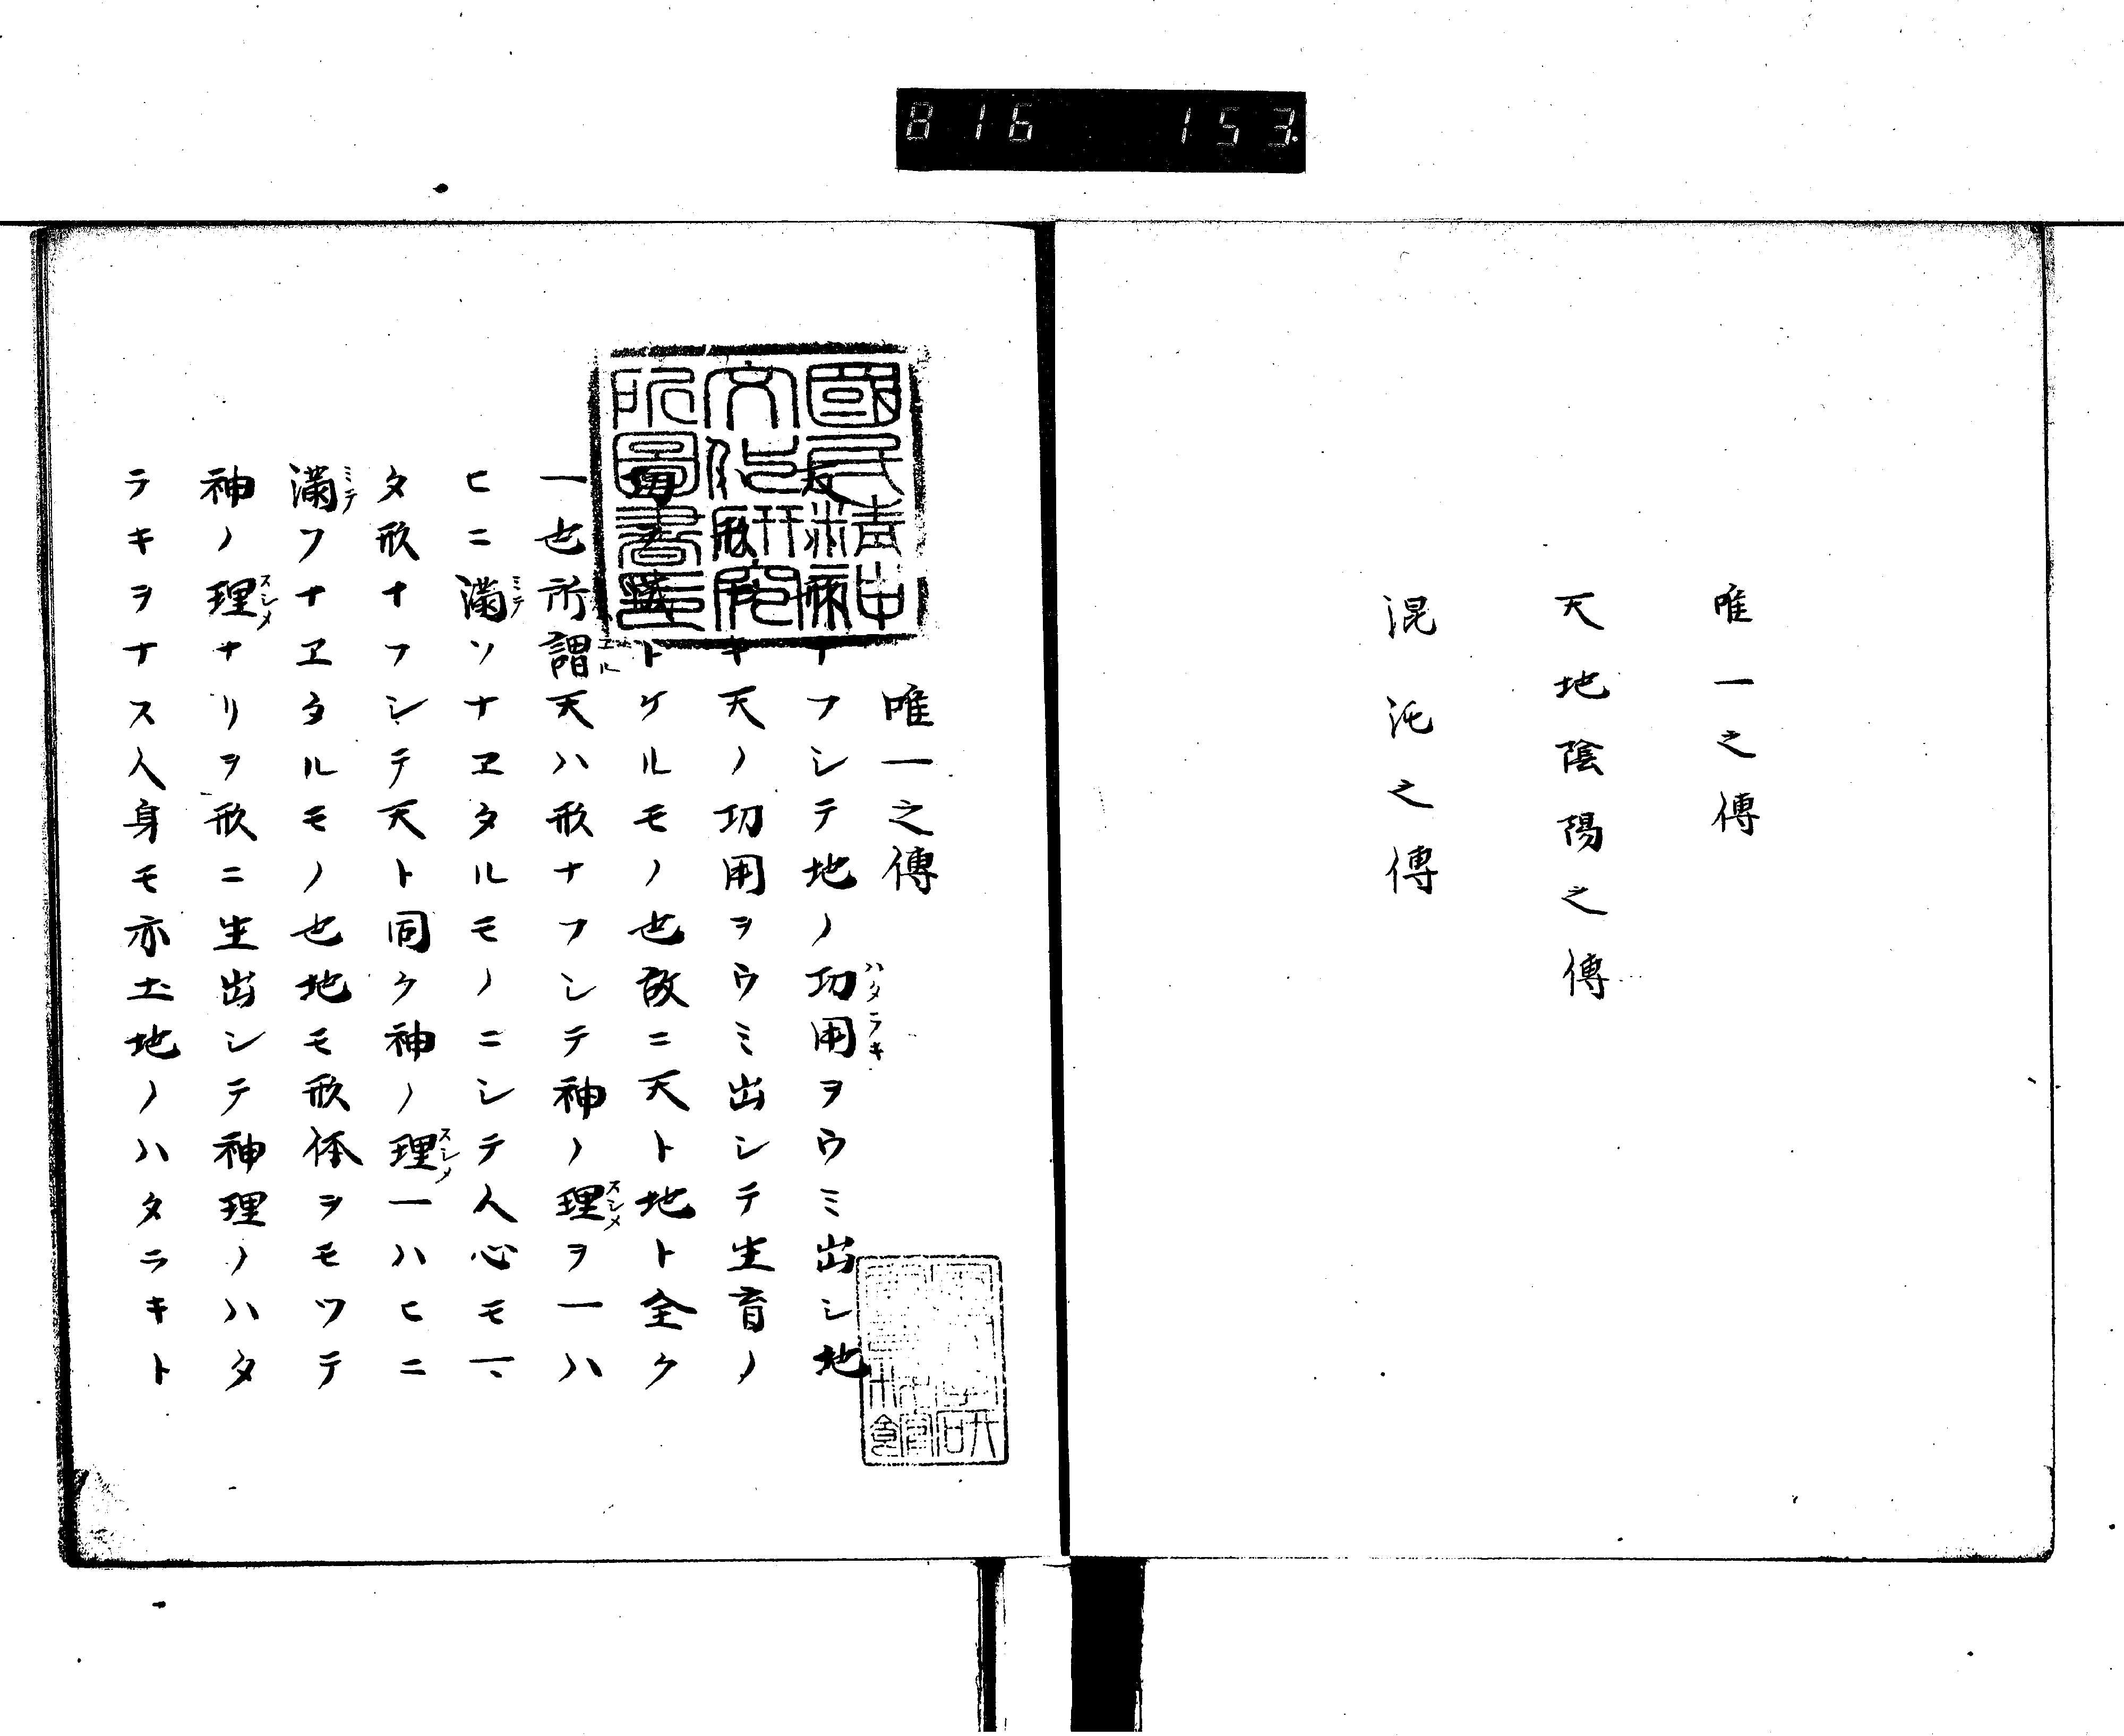 816 153
唯一之傳
天地陰陽之傳
混沌之傳
國民精神
文化研究
所圖書印
唯一之傳
天ハ形ナフシテ地ノ功用ヲウミ出シ地
ハタラキ
天ノ功用ヲウミ出シテ生育ノ
トケルモノ也故ニ天ト地ト全ク
一也所謂天ハ形ナフシテ神ノ理ヲ一ハ
スシメ
ヒニ満ソナヱタルモノニシテ人心モ一
ミテ
タ形ナフシテ天ト同ク神ノ理一ハヒニ
スシメ
満フナヱタルモノ也地モ形体ヲモツテ
ミテ
神ノ理ナリヲ形ニ生出シテ神理ノハタ
スシメ
ラキヲナス人身モ亦土地ノハタラキト